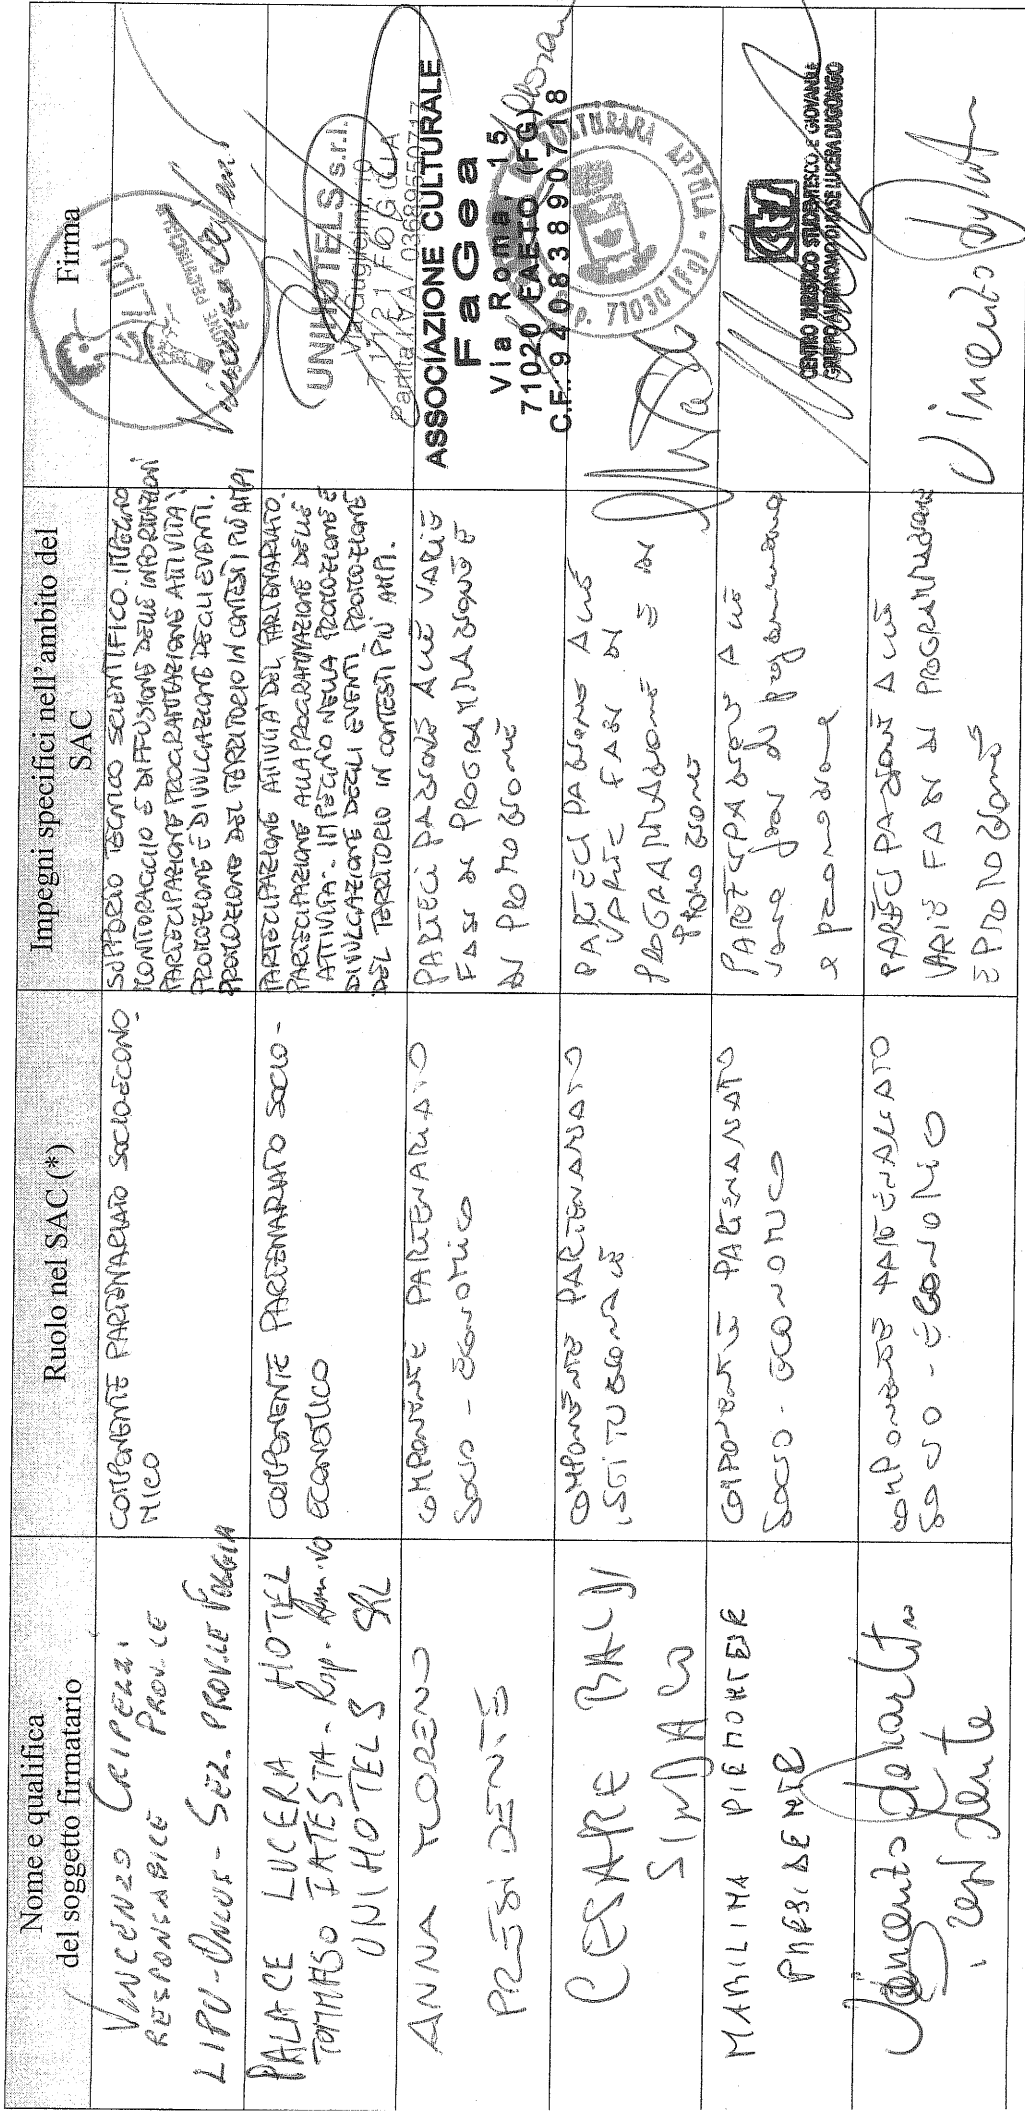 Nome e qualifica
del soggetto firmatario
Ruolo nel SAC (*)
Impegni specifici nell'ambito del
SAC
Firma
VINCENZO CRIPEZZI
RESPONSABILE PROV.LE
LIPU-ONLUS - SEZ. PROV.LE FOGGIA
COMPONENTE PARTENARIATO SOCIO-ECONO
MICO
SUPPORTO TECNICO SCIENTIFICO. IMPEGNO
MONITORAGGIO E DIFFUSIONE DELLE INFORMAZIONI
PARTECIPAZIONE PROGRAMMAZIONE ATTIVITA'
PROMOZIONE E DIVULGAZIONE DEGLI EVENTI.
PROMOZIONE DEL TERRITORIO IN CONTESTI PIÙ AMPI
LIPU
PALACE LUCERA HOTEL
TOMMASO FATESTA - Resp. Amm.vo
UNIHOTELS SRL
COMPONENTE PARTENARIATO SOCIO-
ECONOMICO
PARTECIPAZIONE ATTIVITA' DEL PARTENARIATO.
PARTECIPAZIONE ALLA PROGRAMMAZIONE DELLE
ATTIVITA'. IMPEGNO NELLA PROMOZIONE E
DIVULGAZIONE DEGLI EVENTI. PROMOZIONE
DEL TERRITORIO IN CONTESTI PIÙ AMPI.
UNIHOTELS s.r.l.
Via Guglielmi, 10
71121 FOGGIA
Partita IVA 03689550717
ANNA MORENO
PRESIDENTE
COMPONENTE PARTENARIATO
SOCIO - ECONOMICO
PARTECIPAZIONE ALLE VARIE
FASI DI PROGRAMMAZIONE E
DI PROMOZIONE
ASSOCIAZIONE CULTURALE
FaGea
Via Roma, 15
71020 FAETO (FG)
C.F. 94083890718
CESARE BALDI
SINDACO
COMPONENTE PARTENARIATO
ISTITUZIONALE
PARTECIPAZIONE ALLE
VARIE FASI DI
PROGRAMMAZIONE E DI
PROMOZIONE
C.A.P. 71030 (Fg) - APPULA
MARILINA PIEMONTESE
PRESIDENTE
COMPONENTE PARTENARIATO
SOCIO - ECONOMICO
PARTECIPAZIONE ALLE
varie fasi di programmazione
e promozione
CENTRO TURISTICO STUDENTESCO E GIOVANILE
GRUPPO AUTONOMO DI BASE LUCERA DUGONGO
Vincenzo
Presidente
COMPONENTE PARTENARIATO
SOCIO - ECONOMICO
PARTECIPAZIONE ALLE
VARIE FASI DI PROGRAMMAZIONE
E PROMOZIONE
Vincenzo